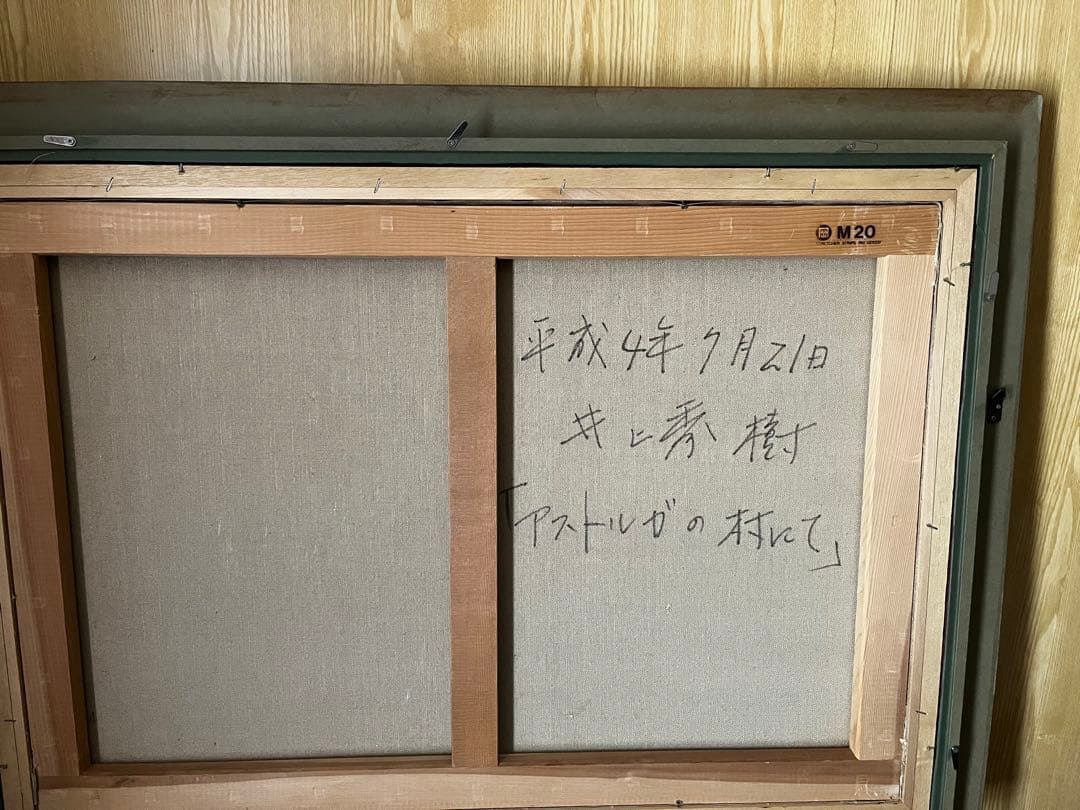 M20
平成4年7月21日
井上秀樹
「アストルガの村にて」